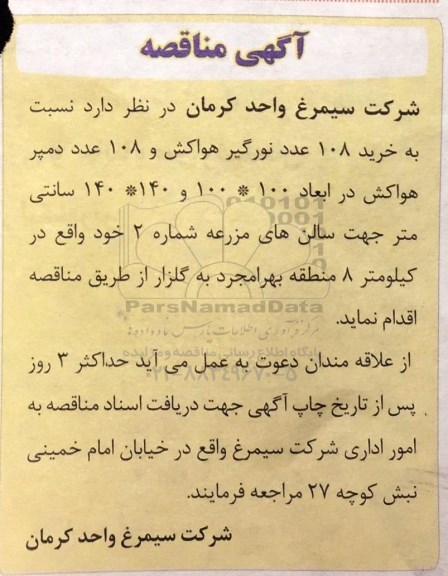 آگهی مناقصه
شرکت سیمرغ واحد کرمان در نظر دارد نسبت
به خرید ۱۰۸ عدد نورگیر هواکش و ۱۰۸ عدد دمپر
هواکش در ابعاد ۱۰۰ * ۱۰۰ و ۱۴۰* ۱۴۰ سانتی
متر جهت سالن های مزرعه شماره ۲ خود واقع در
کیلومتر ۸ منطقه بهرامجرد به گلزار از طریق مناقصه
اقدام نماید.
ParsNamadData
مرکز فرآوری اطلاعات پارس نماد داده ها
پایگاه اطلاع رسانی مناقصه و مزایده
از علاقه مندان دعوت به عمل می آید حداکثر ۳ روز
۰۲۱-۸۸۳۴۹۶۷۰-۵
پس از تاریخ چاپ آگهی جهت دریافت اسناد مناقصه به
امور اداری شرکت سیمرغ واقع در خیابان امام خمینی
نبش کوچه ۲۷ مراجعه فرمایند.
شرکت سیمرغ واحد کرمان